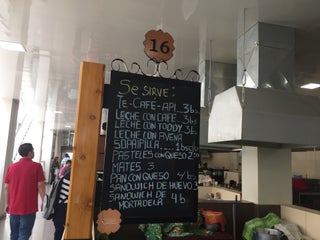 16
Se sirve:
TE-CAFE-API_ 3bs
LECHE CON CAFE 3bs
LECHE CON TODDY 3bs
LECHE CON AVENA
SOPAIPILLA.....1bsc/u
PASTELES CON QUESO 2.50
MATES 3
PAN CON QUESO 4bs
SANDWICH DE HUEVO 3
SANDWICH DE
MORTADELA 4b